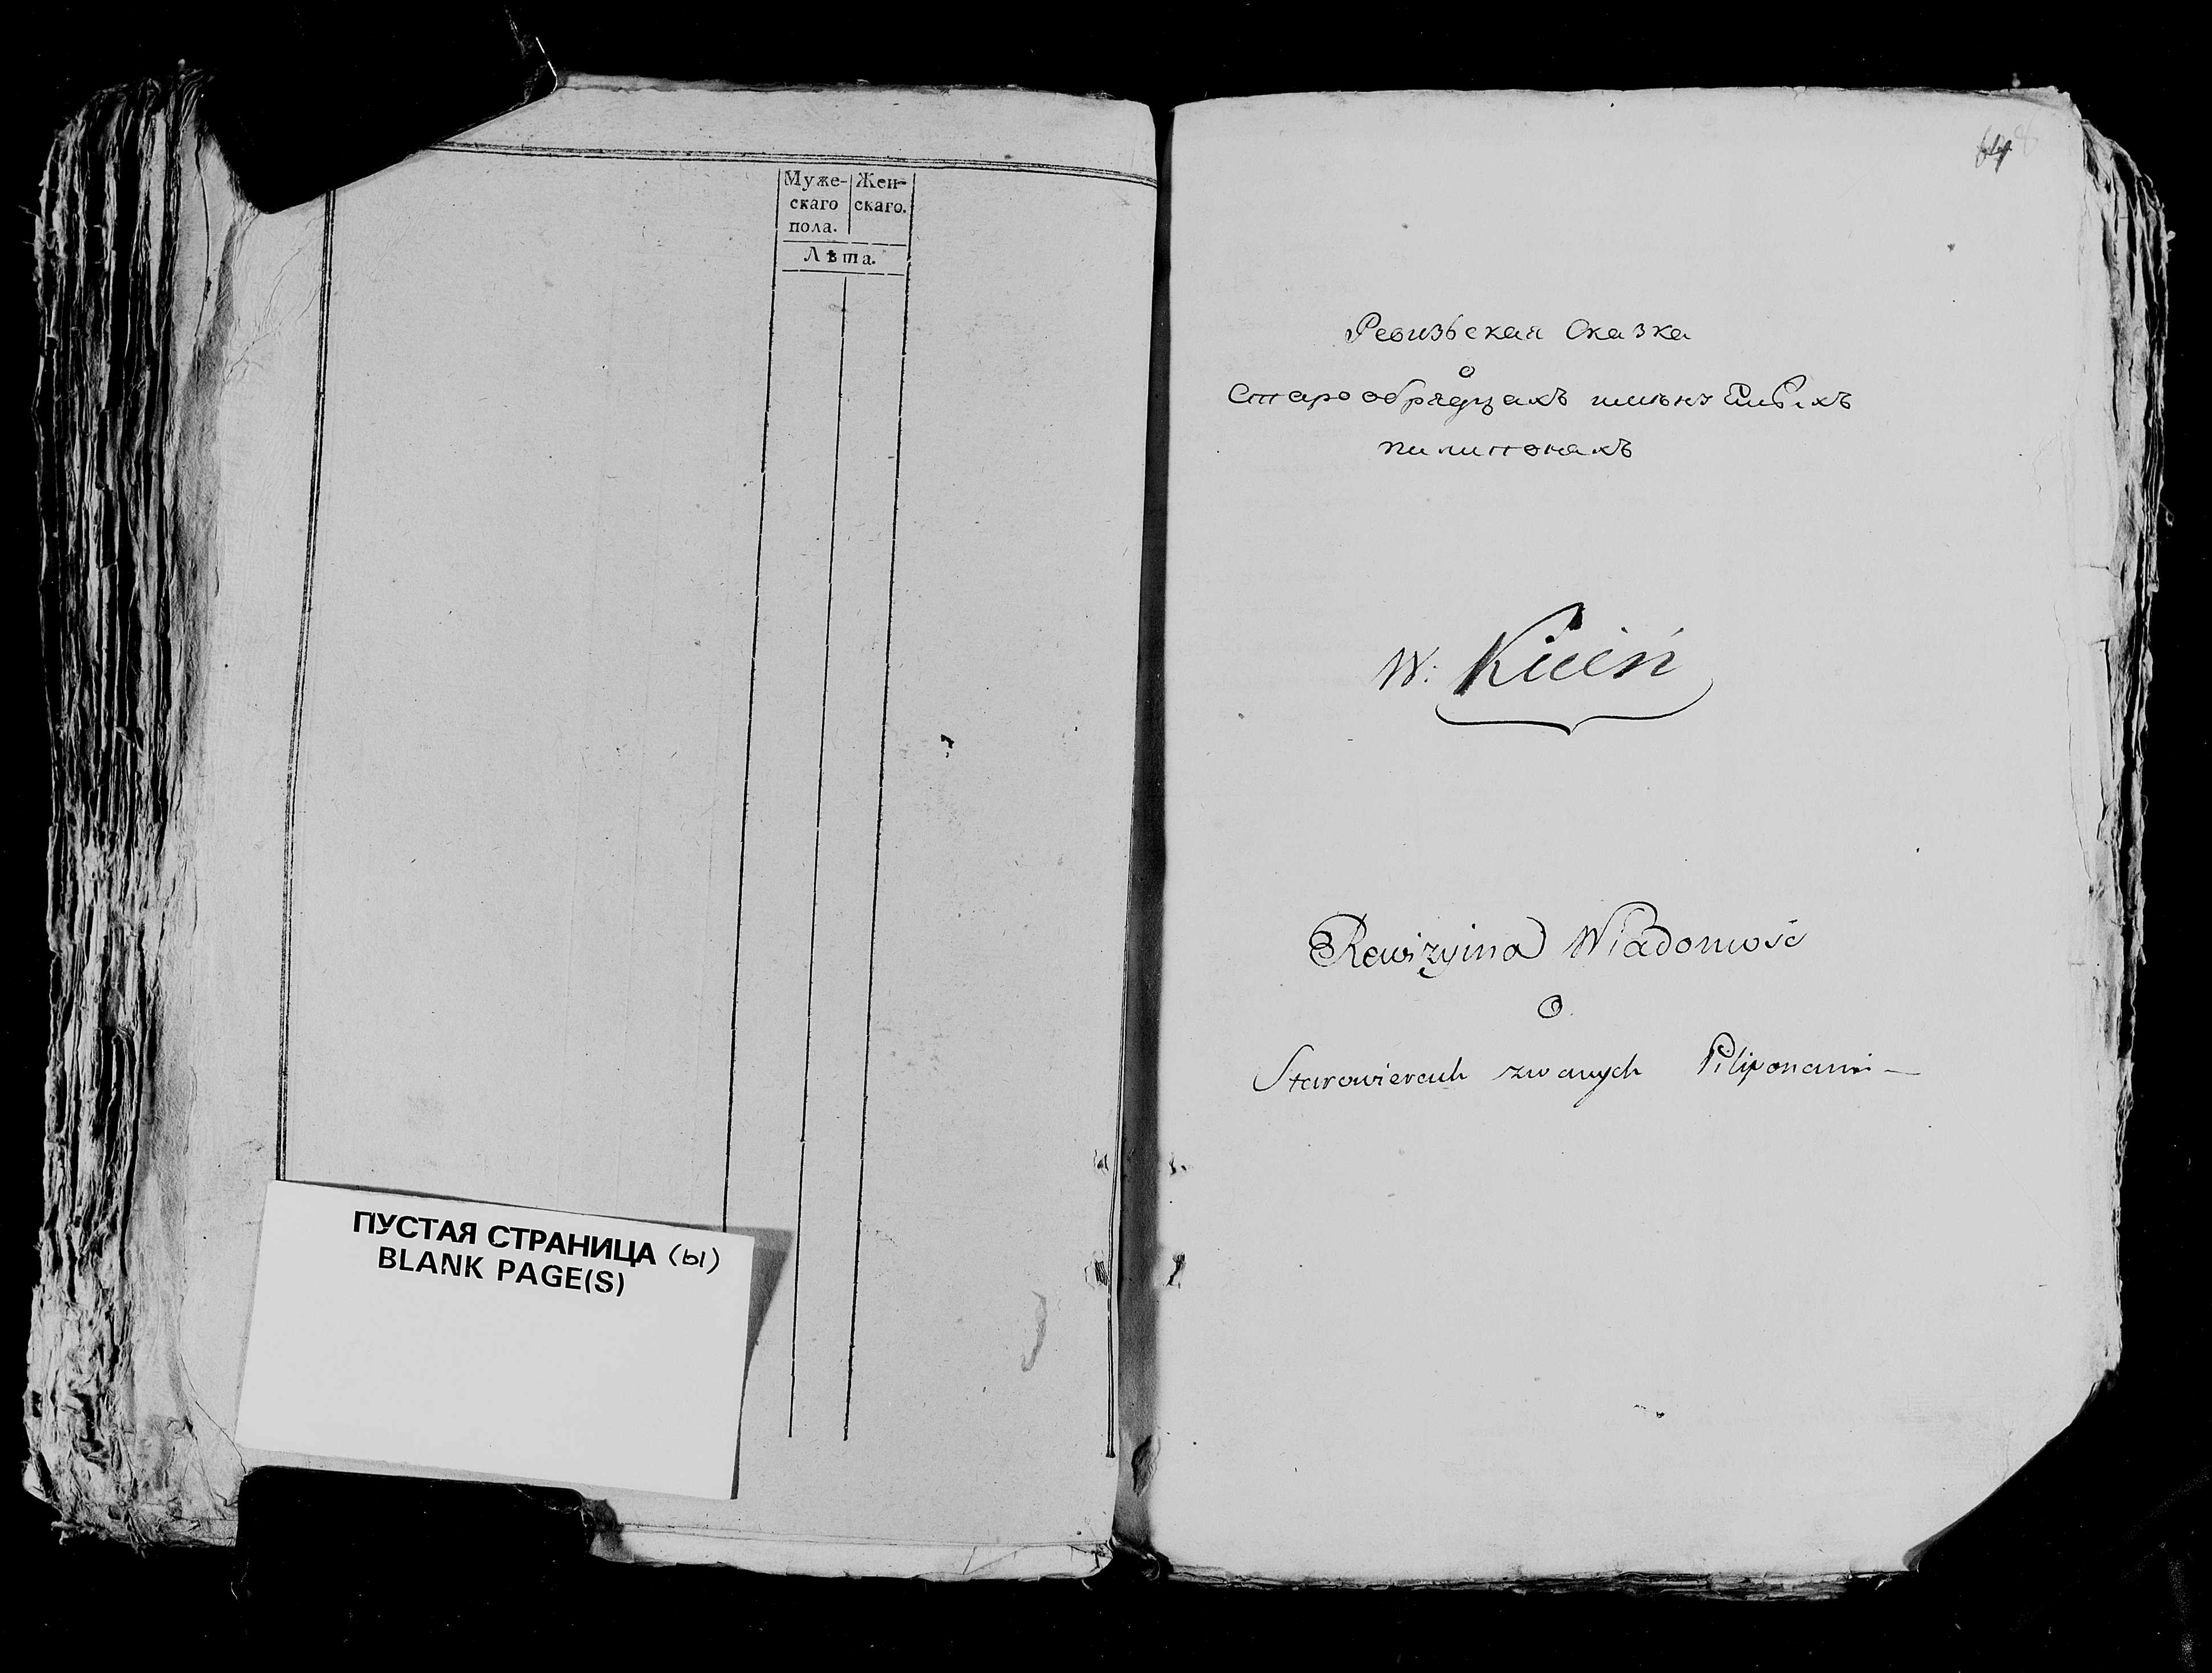 Муже- Жен-
скаго скаго.
пола.
Лѣта.
ПУСТАЯ СТРАНИЦА (ы)
BLANK PAGE(S)
64
Ревизьская Сказка
о
Старообрядцахъ
пилипонахъ
W: Kicin
Rewizyina Wiadomość
O.
Starowierach zwanych Piliponami —